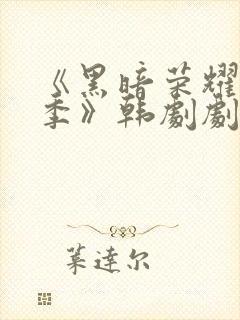 《黑暗荣耀
季》韩剧剧
莱達尔